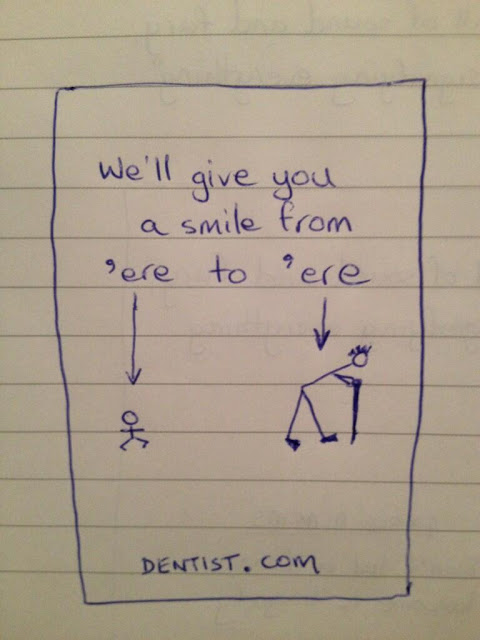 We'll give you
a smile from
'ere to 'ere
DENTIST.COM